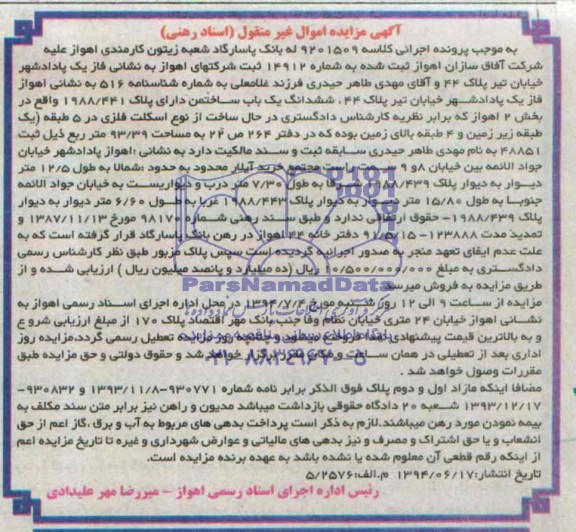 آگهی مزایده اموال غیر منقول (اسناد رهنی)
به موجب پرونده اجرائی کلاسه ۹۲۰۱۵۰۹ له بانک پاسارگاد شعبه زیتون کارمندی اهواز علیه
شرکت آفاق سازان اهواز ثبت شده به شماره ۱۴۹۱۲ ثبت شرکتهای اهواز به نشانی فاز یک پادادشهر
خیابان تیر پلاک ۴۴ و آقای مهدی طاهر حیدری فرزند غلامعلی به شماره شناسنامه ۵۱۶ به نشانی اهواز
فاز یک پادادشهر خیابان تیر پلاک ۴۴، ششدانگ یک باب ساختمن دارای پلاک ۱۹۸۸/۴۴۱ واقع در
بخش ۲ اهواز که برابر نظریه کارشناس دادگستری در حال ساخت از نوع اسکلت فلزی در ۵ طبقه (یک
طبقه زیر زمین و ۴ طبقه بالای زمین بوده که در دفتر ۲۶۴ ص ۲۲ به مساحت ۹۳/۳۹ متر ربع ذیل ثبت
۴۸۸۵۱ به نام مهدی طاهر حیدری سابقه ثبت و سند مالکیت دارد به نشانی :اهواز پادادشهر خیابان
جواد الائمه بین خیابان ۸و ۹ سمت راست مجتمع خرید آیلار محدود به حدود :شمالا به طول ۱۲/۵ متر
دیوار به دیوار پلاک ۱۹۸۸/۴۳۹ شرقا به طول ۷/۳۰ متر درب و دیواریست به خیابان جواد الائمه
جنوبا به طول ۱۵/۸۰ متر دیوار به دیوار پلاک ۱۹۸۸/۴۴۳ غربا به طول ۶/۶۰ متر دیوار به دیوار
پلاک ۱۹۸۸/۴۳۹- حقوق ارتفاقی ندارد و طبق سند رهنی شماره ۹۸۱۷۰ مورخ ۱۳۸۷/۱۱/۱۳ و
تمدید مدت ۱۲۳۸۸۸-۹۱/۵/۱۵ دفتر خانه ۴۴ اهواز در رهن بانک پاسارگاد قرار گرفته است که به
علت عدم ایفای تعهد منجر به صدور اجرائیه گردیده است سپس پلاک مزبور طبق نظر کارشناس رسمی
دادگستری به مبلغ ۱۰/۵۰۰/۰۰۰/۰۰۰ ریال (ده میلیارد و پانصد میلیون ریال ) ارزیابی شده و از
طریق مزایده به فروش میرسد
مزایده از ساعت ۹ الی ۱۲ روز شنبه مورخ ۱۳۹۴/۷/۴ در محل اداره اجرای اسناد رسمی اهواز به
نشانی اهواز خیابان ۲۴ متری خیابان نظام وفا جنب بانک مهر اقتصاد پلاک ۱۷۰ از مبلغ ارزیابی شروع
و به بالاترین قیمت پیشنهادی نقدا فروخته میشود و چنانچه روز مزایده تعطیل رسمی گردد،مزایده روز
اداری بعد از تعطیلی در همان ساعت و مکان مقرر برگزار خواهد شد و حقوق دولتی و حق مزایده طبق
مقررات وصول خواهد شد .
مضافا اینکه مازاد اول و دوم پلاک فوق الذکر برابر نامه شماره ۹۳۰۷۷۱-۱۳۹۳/۱۱/۸ و ۹۳۰۸۳۲-
۱۳۹۳/۱۲/۱۷ شعبه ۲۰ دادگاه حقوقی بازداشت میباشد مدیون و راهن نیز برابر متن سند مکلف به
بیمه نمودن مورد رهن میباشند.لازم به ذکر است پرداخت بدهی های مربوط به آب و برق ،گاز اعم از حق
انشعاب و یا حق اشتراک و مصرف و نیز بدهی های مالیاتی و عوارض شهرداری و غیره تا تاریخ مزایده اعم
از اینکه رقم قطعی آن معلوم شده یا نشده باشد به عهده برنده مزایده است.
تاریخ انتشار:۱۳۹۴/۰۶/۱۷ م.الف:۵/۲۵۷۶
رئیس اداره اجرای اسناد رسمی اهواز – میررضا مهر علیدادی
ParsNamadData
۰۲۱-۸۸۳۴۹۶۷۰-۵